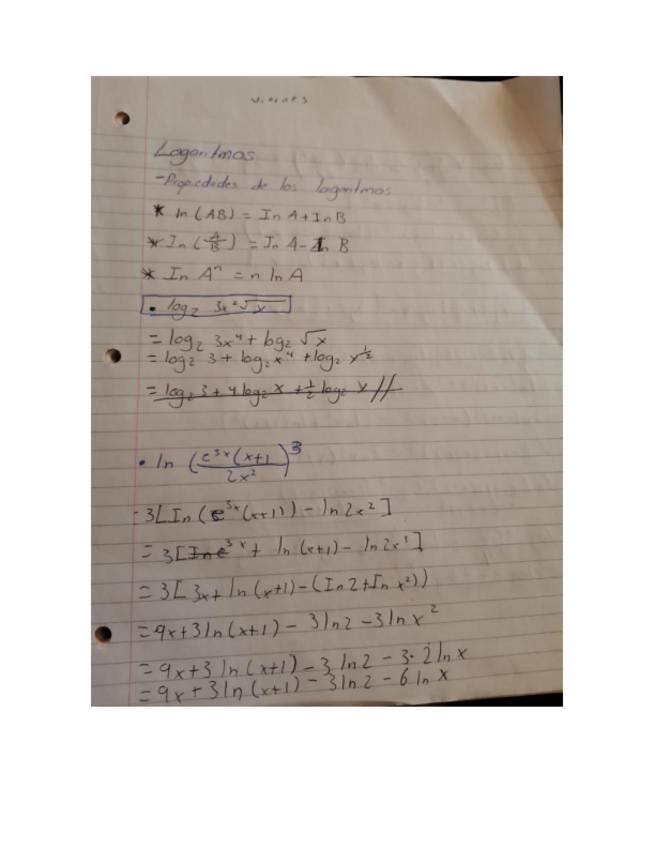 Viernes
Logaritmos
- Propiedades de los logaritmos
* ln (AB) = In A + In B
* In (A/B) = In A - In B
* In Aⁿ = n ln A
• log₂ 3x² √x
= log₂ 3x⁴ + log₂ √x
= log₂ 3 + log₂ x⁴ + log₂ x^½
= log₂ 3 + 4 log₂ x + ½ log₂ x //
• ln (e³ˣ(x+1) / 2x²)³
- 3[In (e³ˣ(x+1)) - ln 2x²]
= 3[In e³ˣ + ln (x+1) - ln 2x²]
= 3[3x + ln (x+1) - (In 2 + In x²))
= 9x + 3 ln (x+1) - 3 ln 2 - 3 ln x²
= 9x + 3 ln (x+1) - 3 ln 2 - 3·2 ln x
= 9x + 3 ln (x+1) - 3 ln 2 - 6 ln x